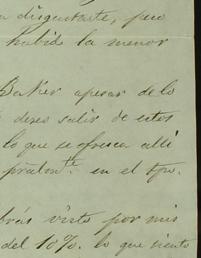 a disgustarte, pero
habido la menor
Baker apesar de lo
deseo salir de estos
lo que se ofresca alli
en el tpo.
visto por mis
del 10%. lo que siento